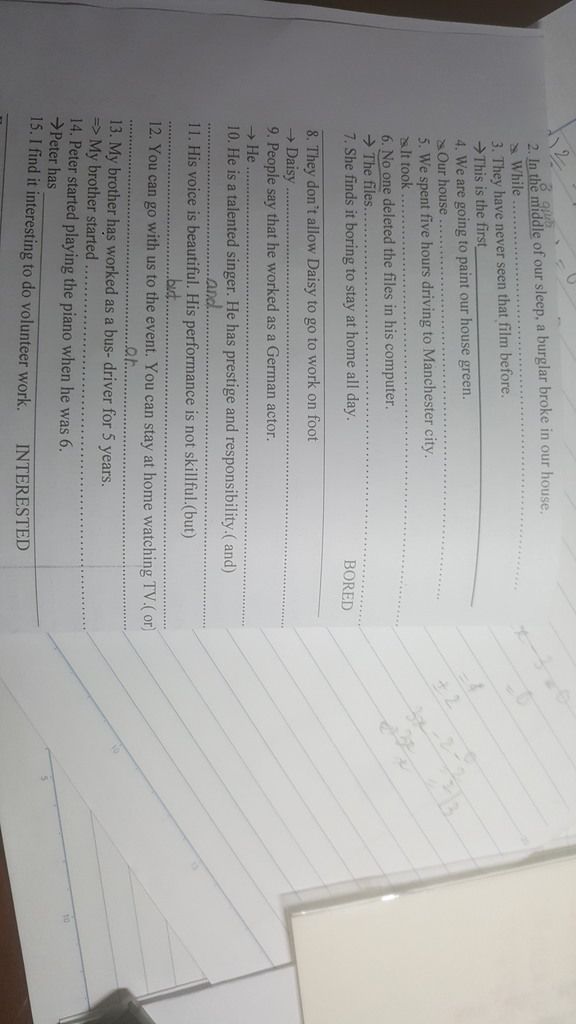 2. In the middle of our sleep, a burglar broke in our house.
ꓻ While ........................
3. They have never seen that film before.
→This is the first
4. We are going to paint our house green.
Our house ........................
5. We spent five hours driving to Manchester city.
It took ........................
6. No one deleted the files in his computer.
→ The files ........................
7. She finds it boring to stay at home all day. BORED
8. They don't allow Daisy to go to work on foot
→ Daisy ........................
9. People say that he worked as a German actor.
→ He ........................
10. He is a talented singer. He has prestige and responsibility.( and)
and
11. His voice is beautiful. His performance is not skillful.(but)
but
12. You can go with us to the event. You can stay at home watching TV.( or)
or
13. My brother has worked as a bus- driver for 5 years.
=> My brother started ........................
14. Peter started playing the piano when he was 6.
→Peter has
15. I find it interesting to do volunteer work. INTERESTED